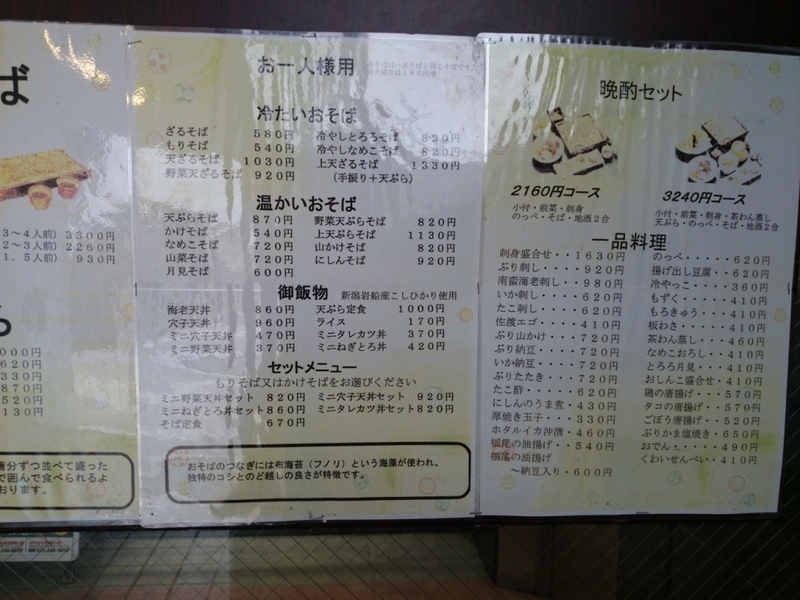 ば
3～4人前) 3300円
2～3人前) 2260円
1.5人前) 930円
000円
620円
330円
870円
520円
130円
分ずつ並べて盛った
で囲んで食べられるよ
おります。
お一人様用
冷たいおそば
ざるそば 580円
もりそば 540円
天ざるそば 1030円
野菜天ざるそば 920円
冷やしとろろそば 820円
冷やしなめこそば 820円
上天ざるそば 1330円
(手振り＋天ぷら)
温かいおそば
天ぷらそば 870円
かけそば 540円
なめこそば 720円
山菜そば 720円
月見そば 600円
野菜天ぷらそば 820円
上天ぷらそば 1130円
山かけそば 820円
にしんそば 920円
御飯物 新潟岩船産こしひかり使用
海老天丼 860円
穴子天丼 960円
ミニ穴子天丼 470円
ミニ野菜天丼 370円
天ぷら定食 1000円
ライス 170円
ミニタレカツ丼 370円
ミニねぎとろ丼 420円
セットメニュー
もりそば又はかけそばをお選びください
ミニ野菜天丼セット 820円
ミニねぎとろ丼セット860円
そば定食 670円
ミニ穴子天丼セット 920円
ミニタレカツ丼セット820円
おそばのつなぎには布海苔（フノリ）という海藻が使われ、
独特のコシとのど越しの良さが特徴です。
晩酌セット
2160円コース
小付・前菜・刺身
のっぺ・そば・地酒2合
3240円コース
小付・前菜・刺身・茶わん蒸し
天ぷら・のっぺ・そば・地酒2合
一品料理
刺身盛合せ・・1630円
ぶり刺し・・・・920円
南蛮海老刺し・・980円
いか刺し・・・・620円
たこ刺し・・・・620円
佐渡エゴ・・・・410円
ぶり山かけ・・・720円
ぶり納豆・・・・720円
いか納豆・・・・720円
ぶりたたき・・・720円
たこ酢・・・・・620円
にしんのうま煮・430円
厚焼き玉子・・・330円
ホタルイカ沖漬・460円
栃尾の油揚げ・・540円
栃尾の油揚げ
～納豆入り・600円
のっぺ・・・・・620円
揚げ出し豆腐・・620円
冷やっこ・・・・360円
もずく・・・・・410円
もろきゅう・・・410円
板わさ・・・・・410円
茶わん蒸し・・・460円
なめこおろし・・410円
とろろ月見・・・410円
おしんこ盛合せ・410円
鶏の唐揚げ・・・570円
タコの唐揚げ・・570円
ごぼう唐揚げ・・520円
ぶりかま塩焼き・650円
おでん・・・・・490円
くわいせんべい・410円